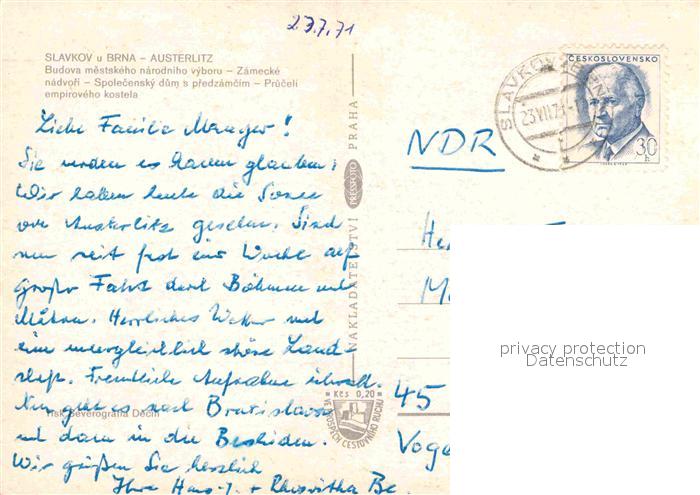 23.7.71
SLAVKOV u BRNA – AUSTERLITZ
Budova městského národního výboru – Zámecké
nádvoří – Společenský dům s předzámčím – Průčelí
empírového kostela
Liebe Familie
Sie werden es kaum glauben:
Wir haben heute die Sonne
von Austerlitz gesehen. Sind
nun seit fast einer Woche auf
großer Fahrt durch Böhmen und
Mähren. Herrliches Wetter und
eine unvergleichlich schöne Land-
schaft. Freundliche Aufnahme überall.
Nun geht es nach Bratislava
und dann in die Beskiden.
Wir grüßen Sie herzlich
Ihre Hans-J. + Rhoswitha Be
Tisk Severografia Děčín
NAKLADATELSTVÍ PRESSFOTO PRAHA
Kčs 0,20
VE PROSPĚCH CESTOVNÍHO RUCHU
ČESKOSLOVENSKO
30 h
SLAVKOV
23.VII.71
NDR
45
privacy protection
Datenschutz